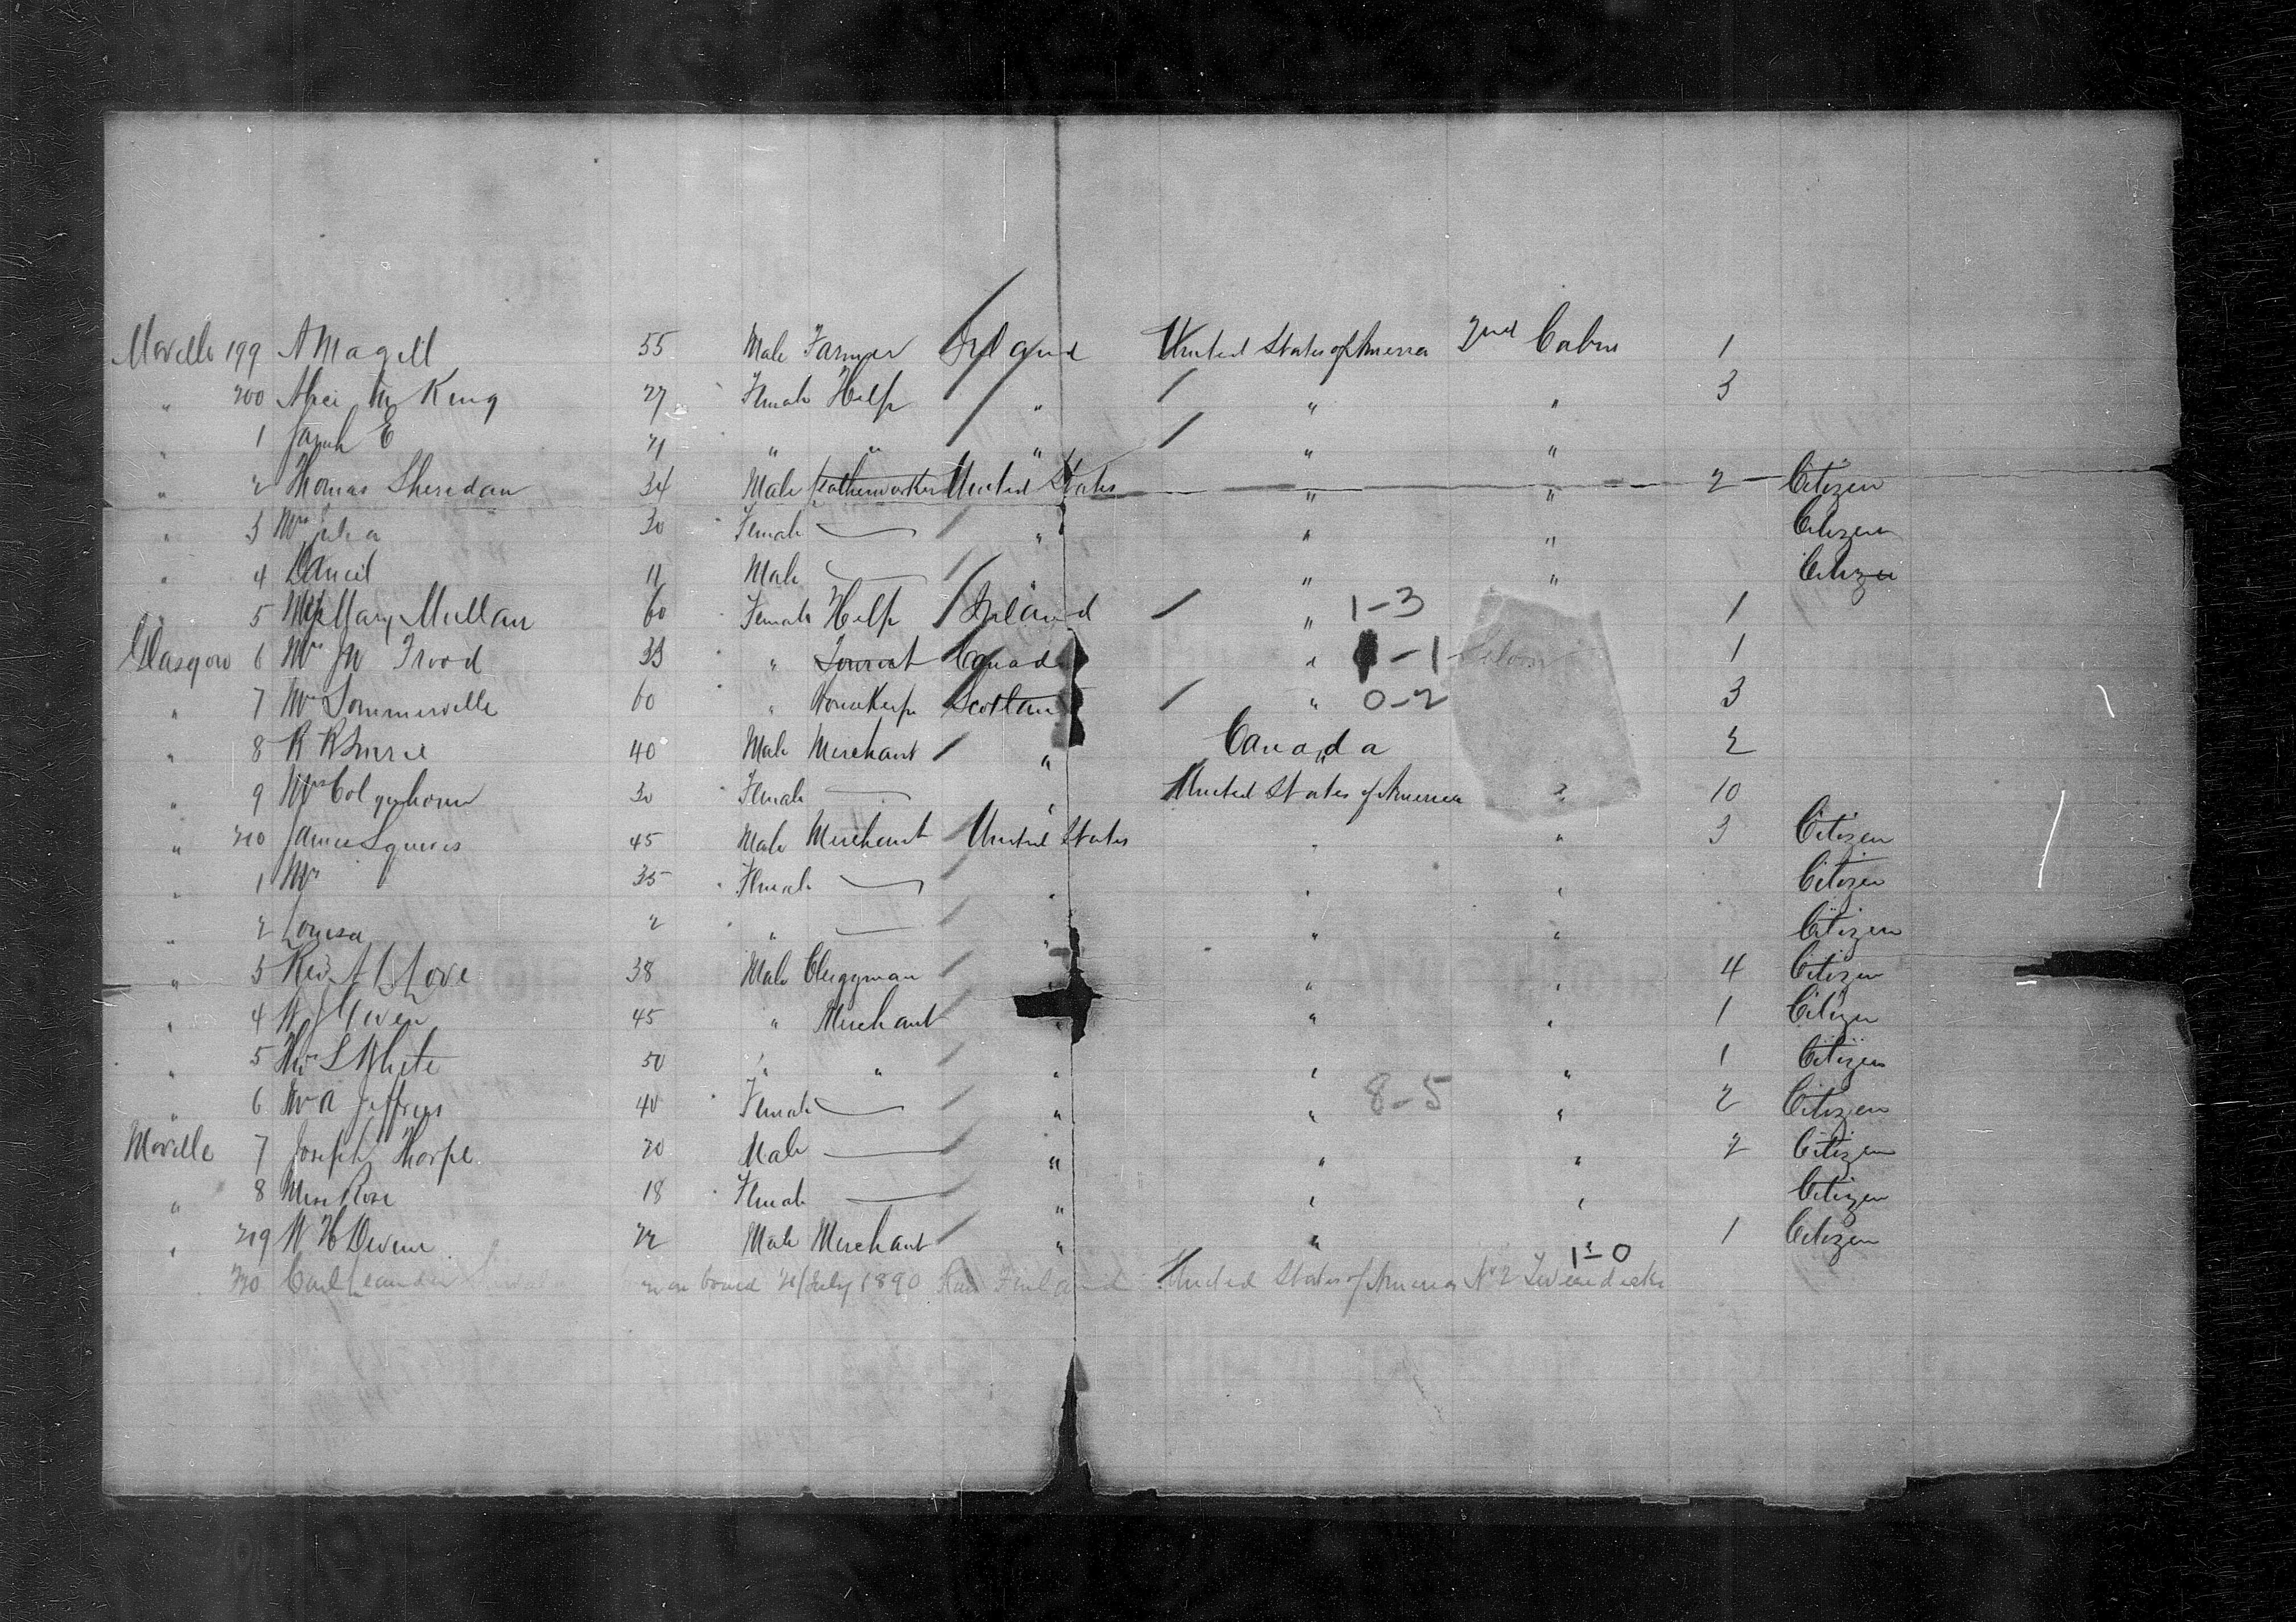 Moville 199 A Magill 55 Male Farmer Ireland United States of America 2nd Cabin 1
" 200 King 27 Female Help " " " 3
" 1 Sarah E 21 " " " " "
" 2 Thomas Sheridan 34 Male Leatherworker United States " " 2 Citizen
" 3 Mrs Julia 30 Female — " " " Citizen
" 4 Daniel 11 Male — " " " Citizen
" 5 Mary Mullan 60 Female Help Ireland " 1-3 1
Glasgow 6 Mrs Frood 33 " Tourist Canada " -1 Saloon 1
" 7 Mrs Sommerville 60 " Housekeeper Scotland " 0-2 3
" 8 40 Male Merchant " Canada 2
" 9 Mrs Colquhoun 30 Female — " United States of America " 10
" 210 James Squires 45 Male Merchant United States " " 3 Citizen
" 1 Mrs 35 Female — " " " Citizen
" 2 Louisa 2 " — " " " Citizen
" 3 Rev 38 Male Clergyman " " " 4 Citizen
" 4 45 " Merchant " " " 1 Citizen
" 5 White 50 " " " " " 1 Citizen
" 6 Mrs A Jeffries 40 Female — " " 8-5 " 2 Citizen
Moville 7 Joseph Thorpe 20 Male — " " " 2 Citizen
" 8 Miss Rose 18 Female — " " " Citizen
" 219 W H Devine 22 Male Merchant " " " 1 Citizen
1-0
220 Carl Leander on board July 1890 Finland United States of America No 2